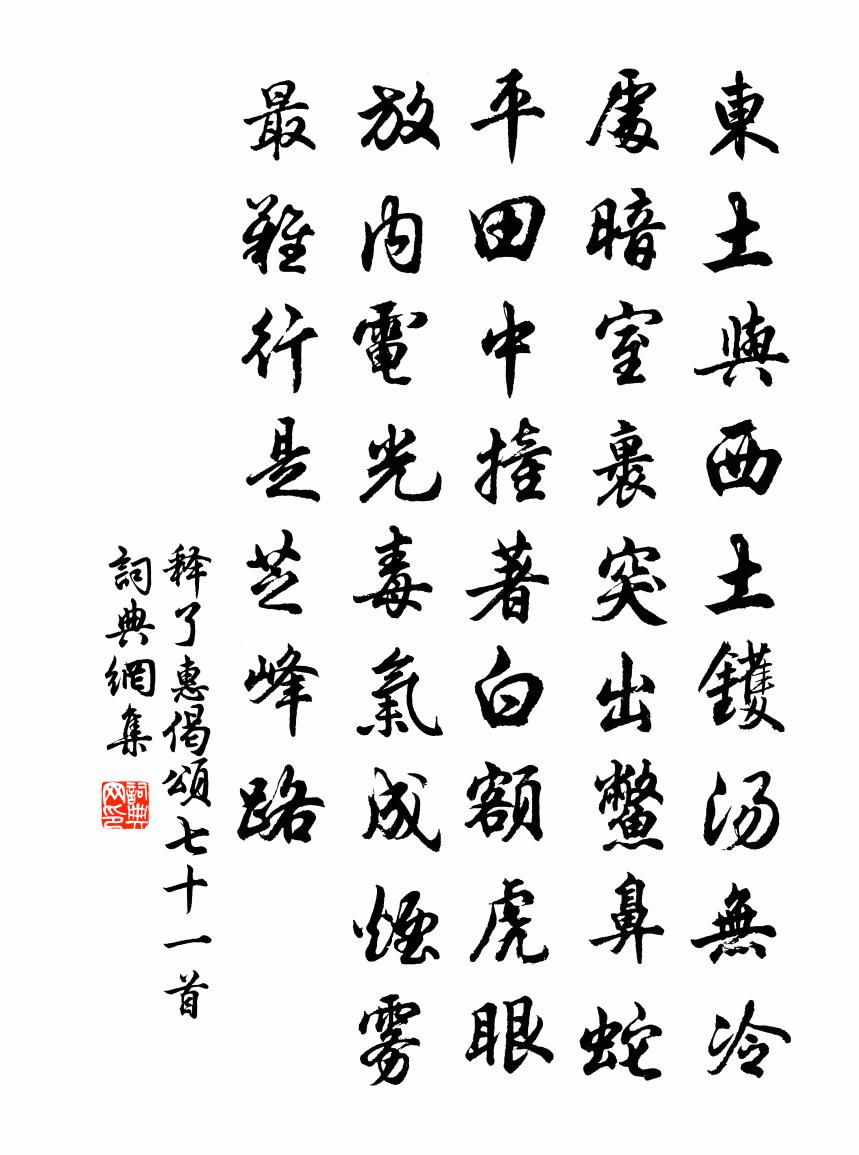 東土與西土鑊湯無冷
處暗室裏突出鱉鼻蛇
平田中撞著白額虎眼
放內電光毒氣成煙雾
最難行是芝峰路
释了惠偈頌七十一首
詞典網集
詞典网印